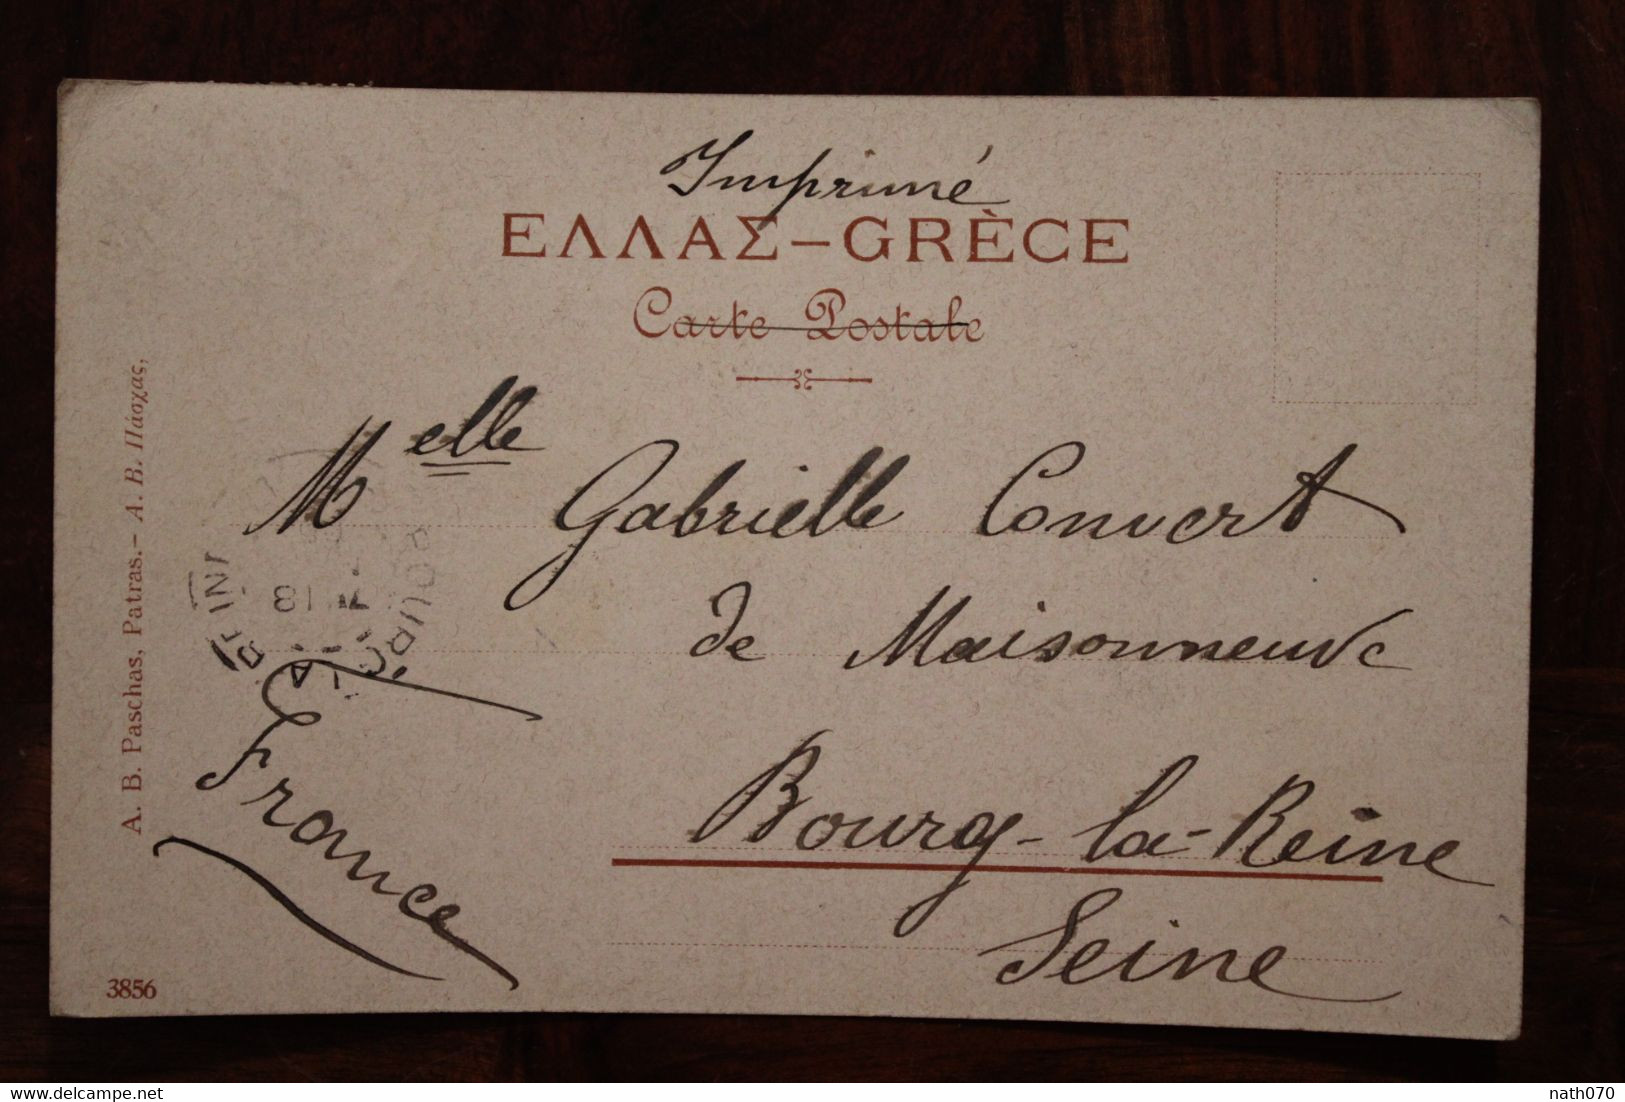 Imprimé
ΕΛΛΑΣ – GRÈCE
Carte Postale
Melle Gabrielle Convert
de Maisonneuve
Bourg-la-Reine
Seine
France
A. B. Paschas, Patras. – Α. Β. Πάσχας,
3856
BOURG LA REINE
18
delcampe.net
nath070